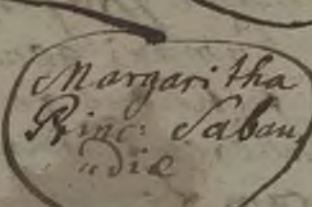 Margaritha
Princ: Sabau
diæ